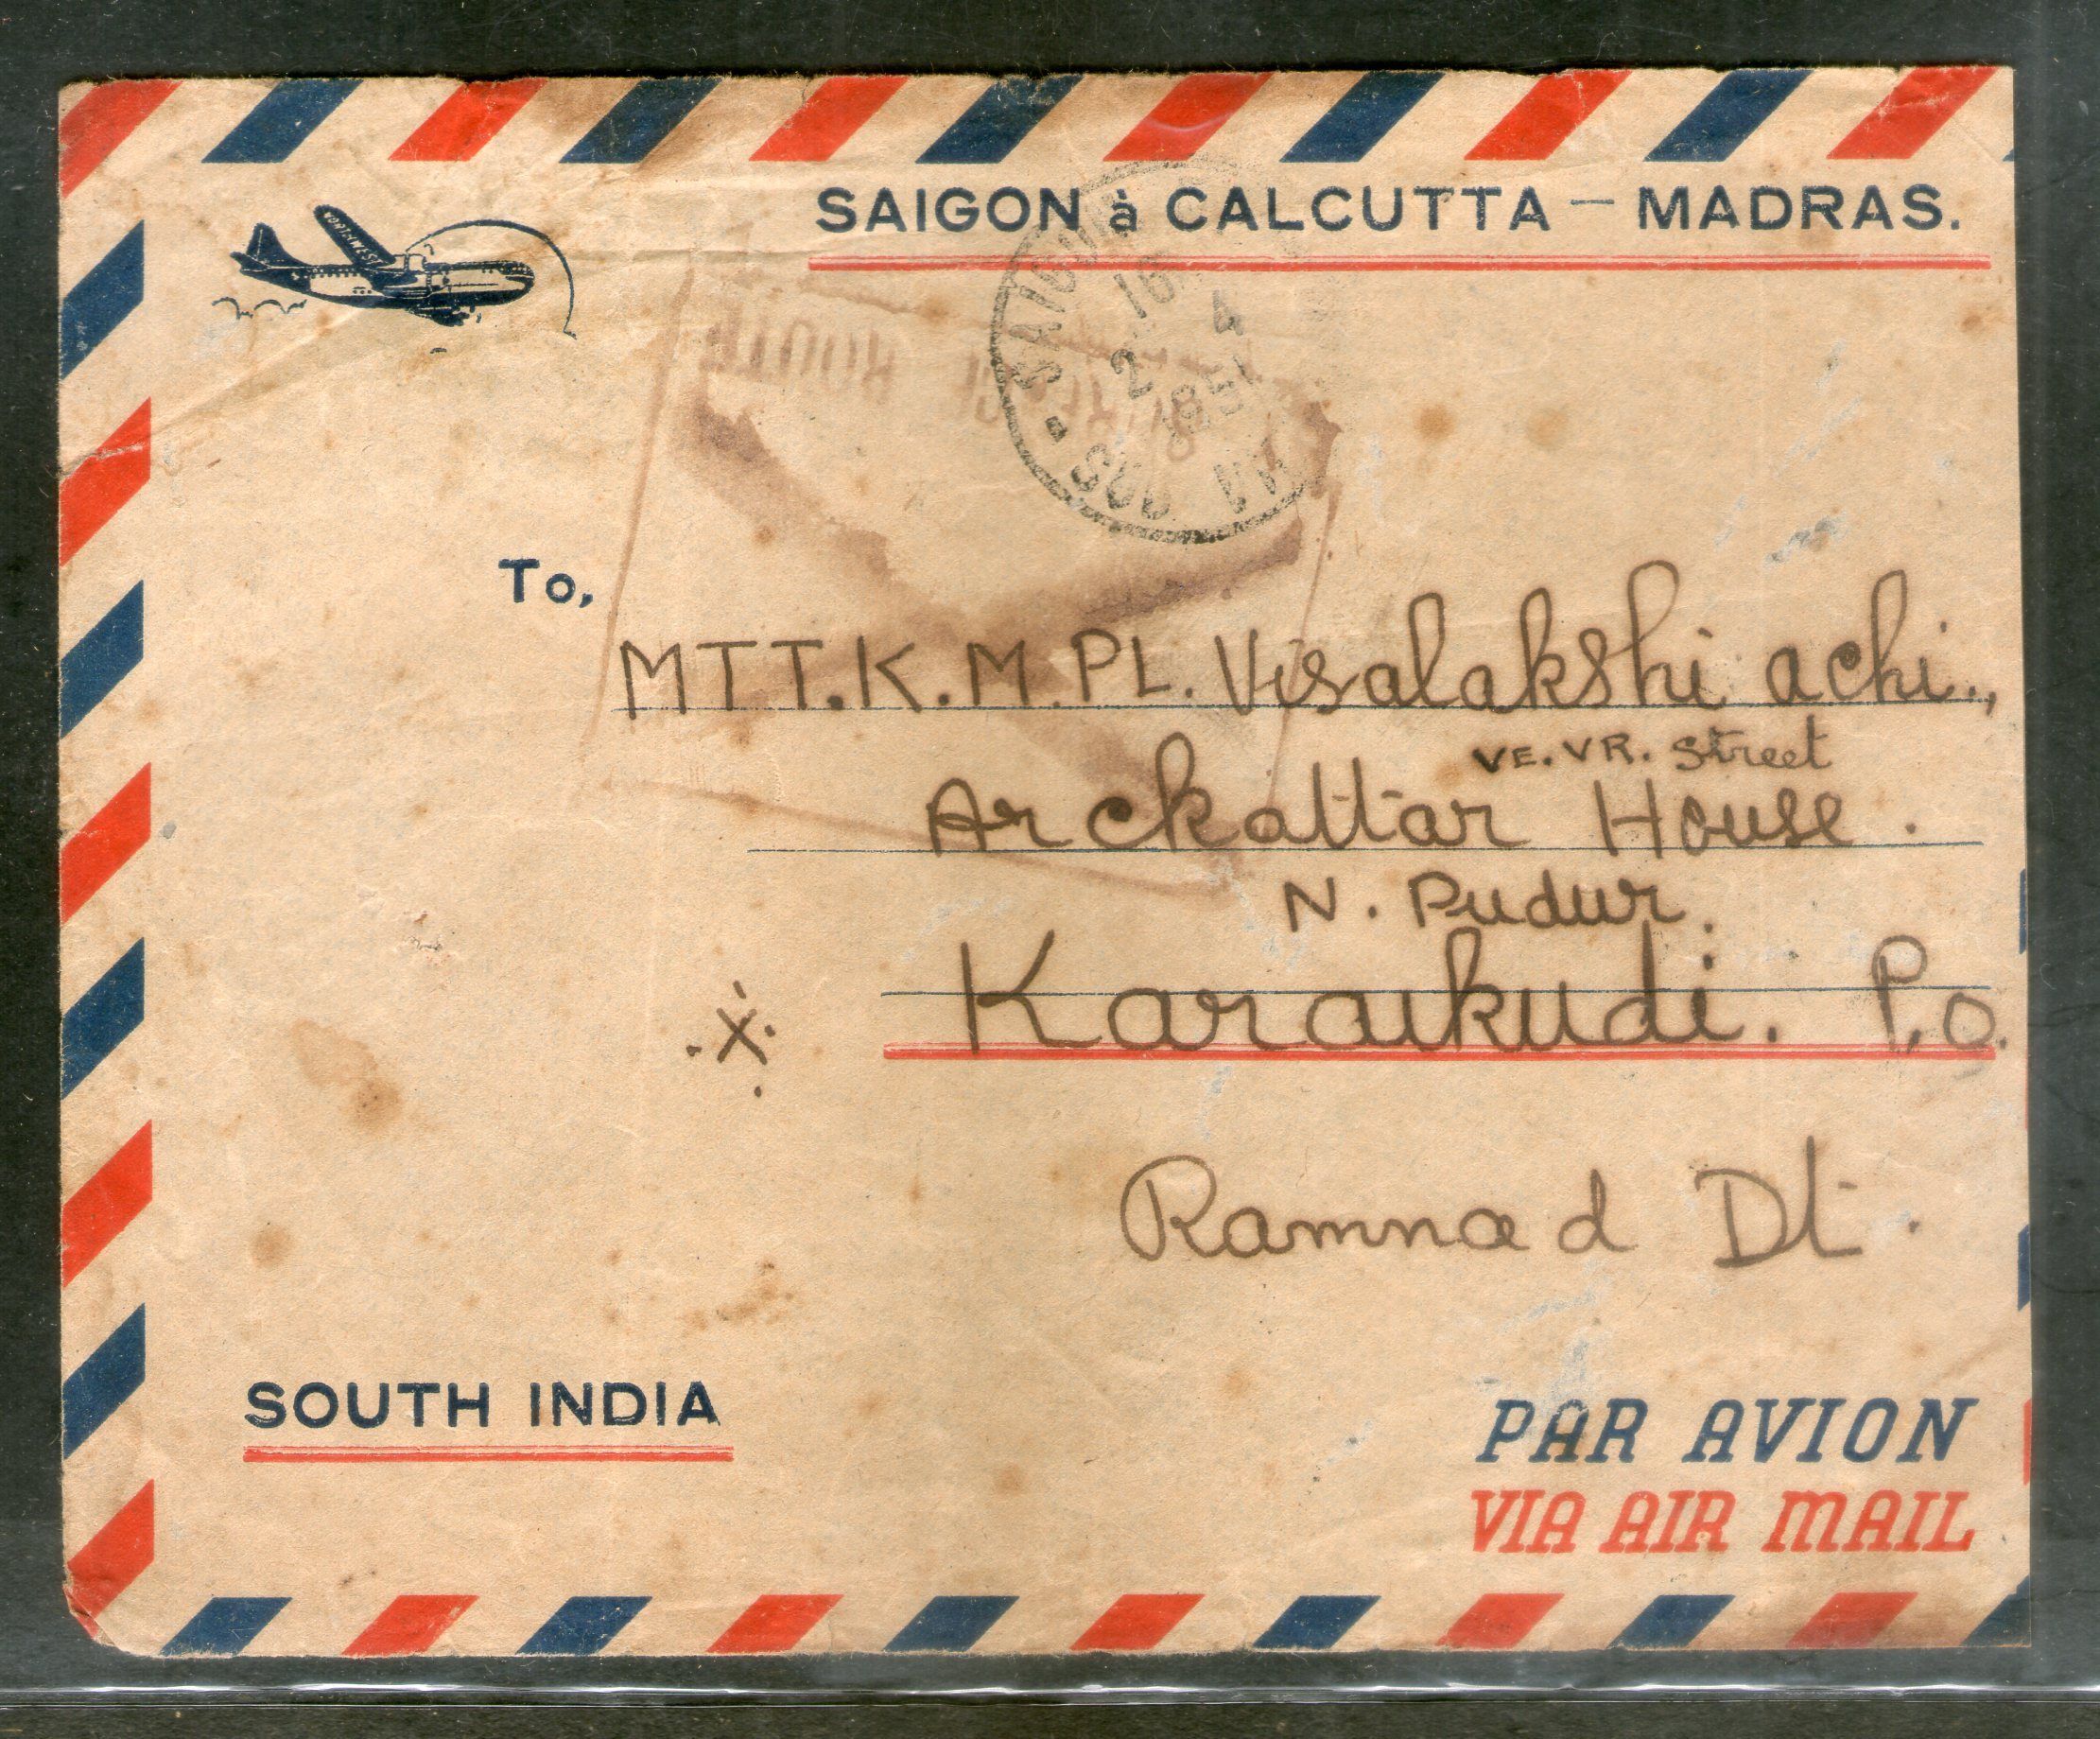 SAIGON à CALCUTTA — MADRAS.
NORTHWEST
SAIGON
16
2 4
1951
SUD
ROUTE
To,
MTT.K.M.PL. Visalakshi achi.,
VE.VR. Street
Arckattar House.
N. Pudur.
Karaikudi. P.o.
Ramnad Dt.
SOUTH INDIA
PAR AVION
VIA AIR MAIL